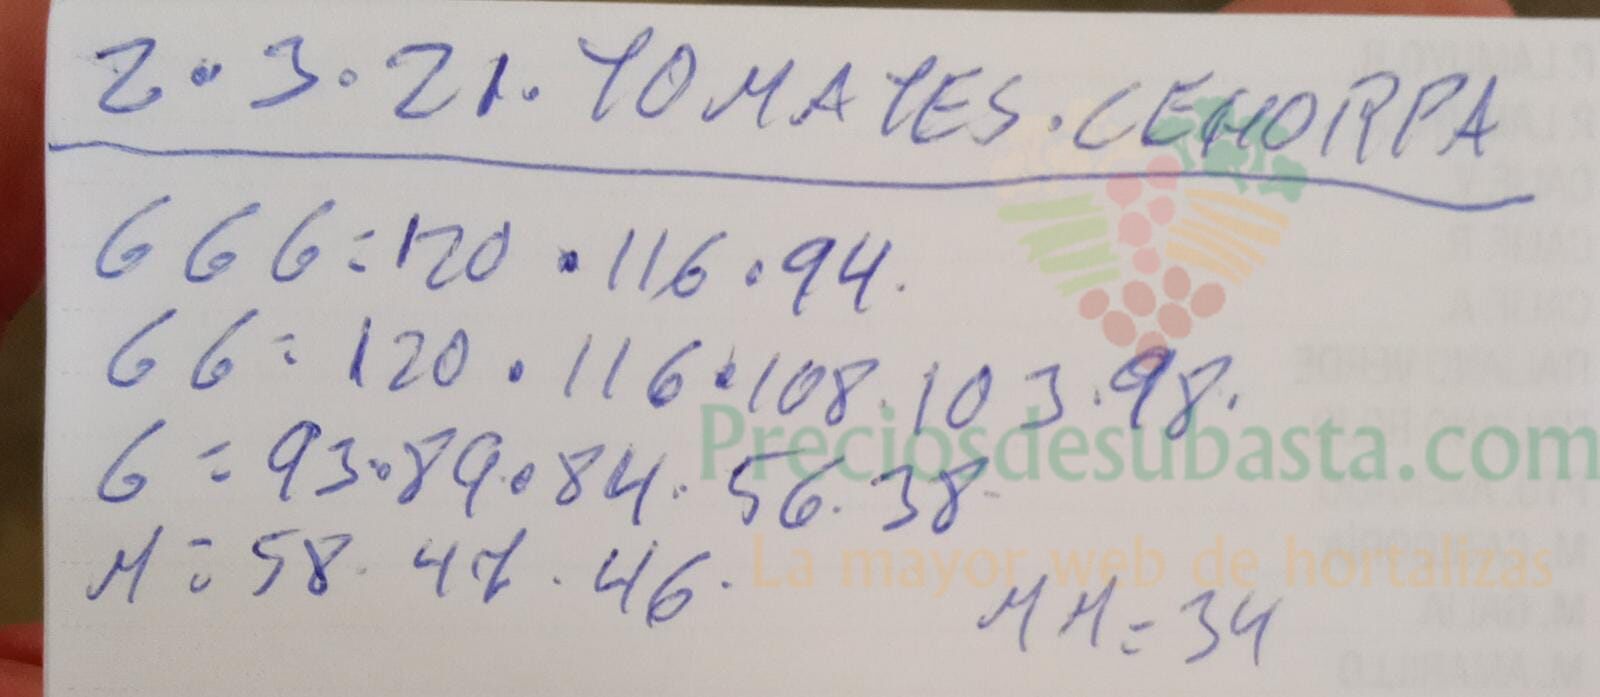 2.3.21.TOMATES.CEHORPA
GGG=120.116.94.
GG=120.116.108.103.98.
G=93.89.84.56.38
M=58.47.46.
MM=34
Preciosdesubasta.com
La mayor web de hortalizas